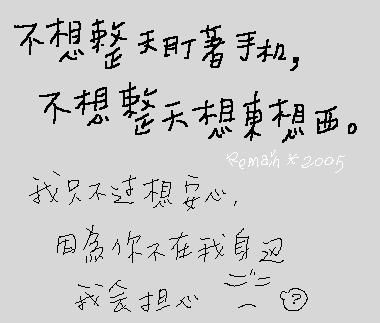 不想整天盯著手机，
不想整天想東想西。
Remain * 2005
我只不过想安心，
因為你不在我身边
我会担心
?